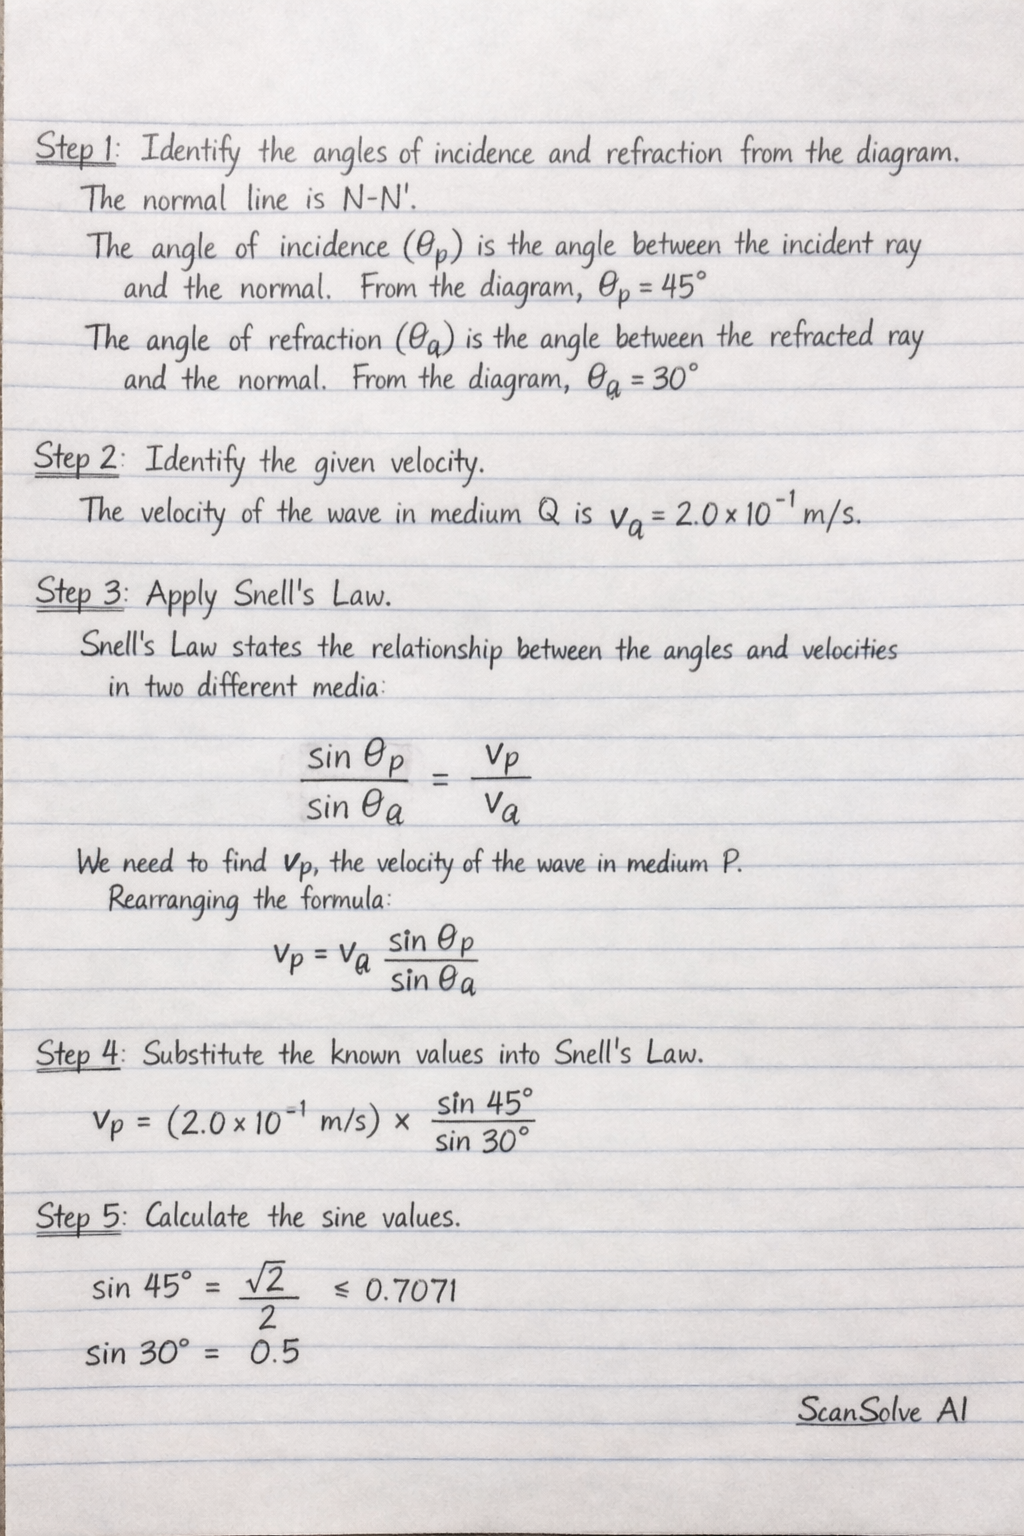 Step 1: Identify the angles of incidence and refraction from the diagram.
The normal line is N-N'.
The angle of incidence (θp) is the angle between the incident ray
and the normal. From the diagram, θp = 45°
The angle of refraction (θa) is the angle between the refracted ray
and the normal. From the diagram, θa = 30°
Step 2: Identify the given velocity.
The velocity of the wave in medium Q is va = 2.0 × 10⁻¹ m/s.
Step 3: Apply Snell's Law.
Snell's Law states the relationship between the angles and velocities
in two different media:
sin θp / sin θa = vp / va
We need to find vp, the velocity of the wave in medium P.
Rearranging the formula:
vp = va sin θp / sin θa
Step 4: Substitute the known values into Snell's Law.
vp = (2.0 × 10⁻¹ m/s) × sin 45° / sin 30°
Step 5: Calculate the sine values.
sin 45° = √2 / 2 ≤ 0.7071
sin 30° = 0.5
ScanSolve AI